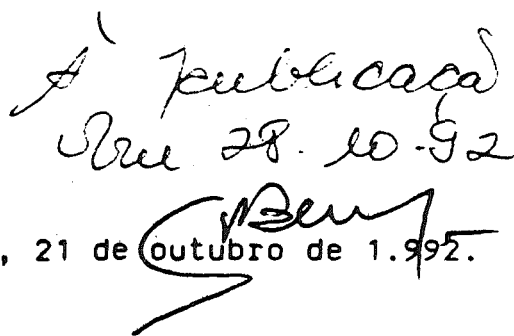 À publicaçã
Em 28.10-92
, 21 de outubro de 1.992.